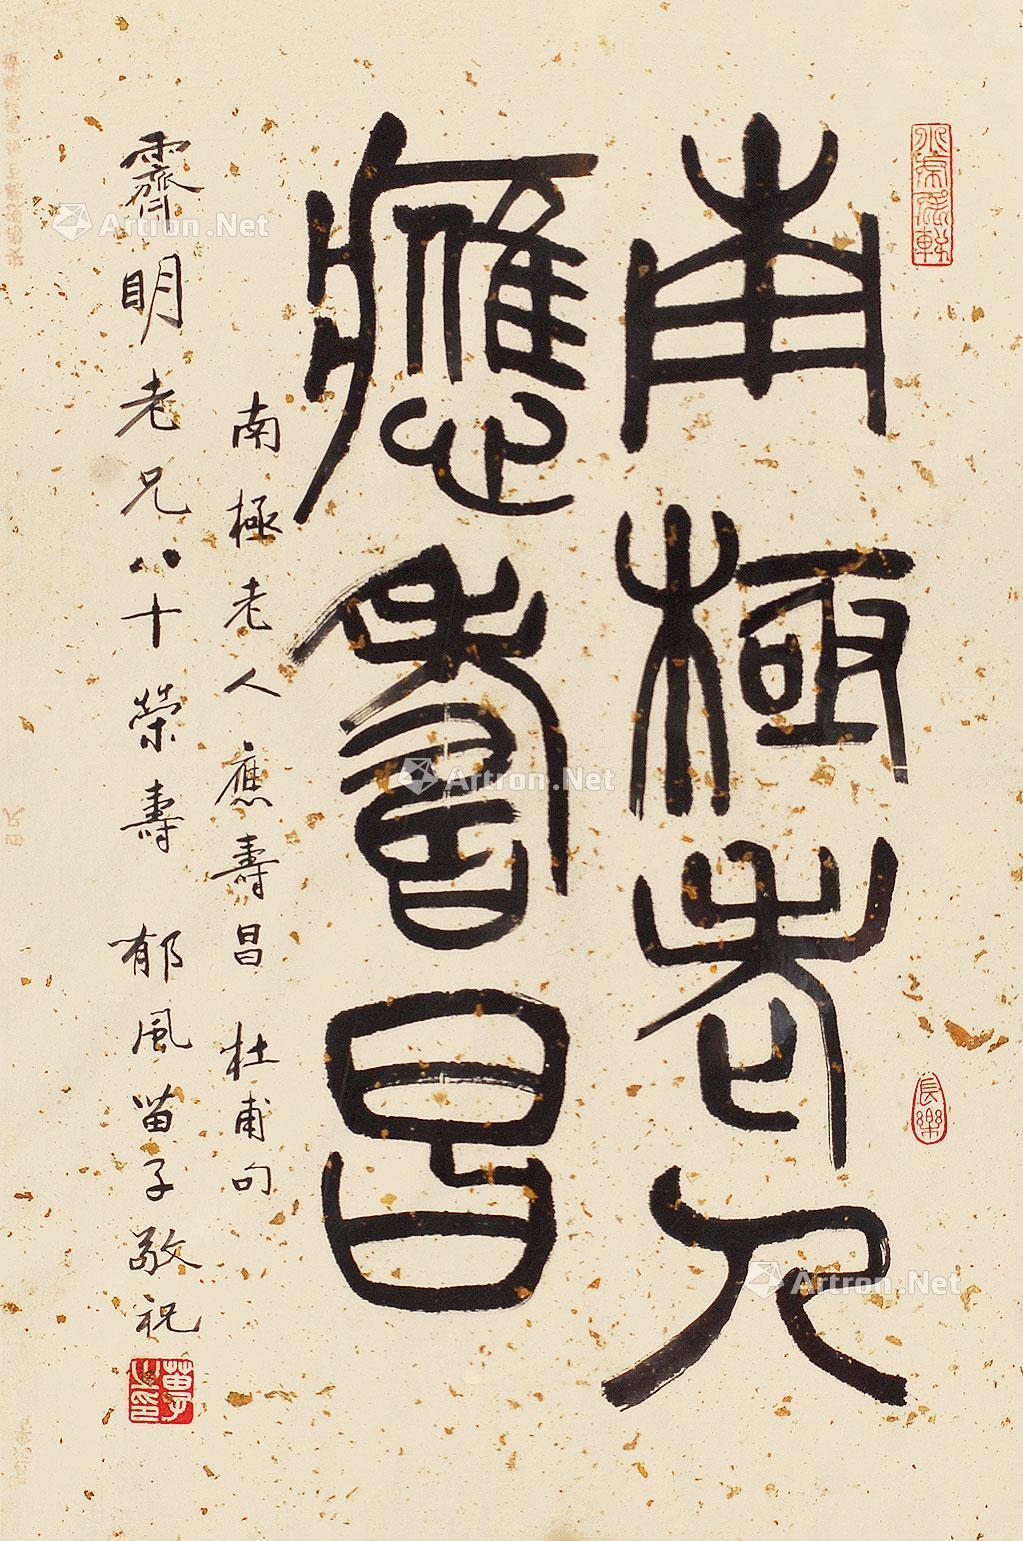 南極老人
應壽昌
南極老人應壽昌 杜甫句
霽明老兄八十榮壽 郁風苗子敬祝
長樂
苗子之印
Artron.Net
Artron.Net
Artron.Net